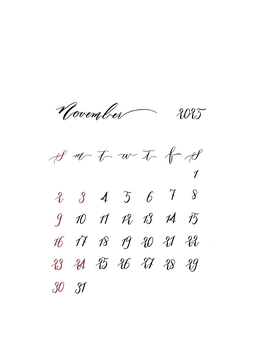 November 2025
S m t w t f S
1
2 3 4 5 6 7 8
9 10 11 12 13 14 15
16 17 18 19 20 21 22
23 24 25 26 27 28 29
30 31